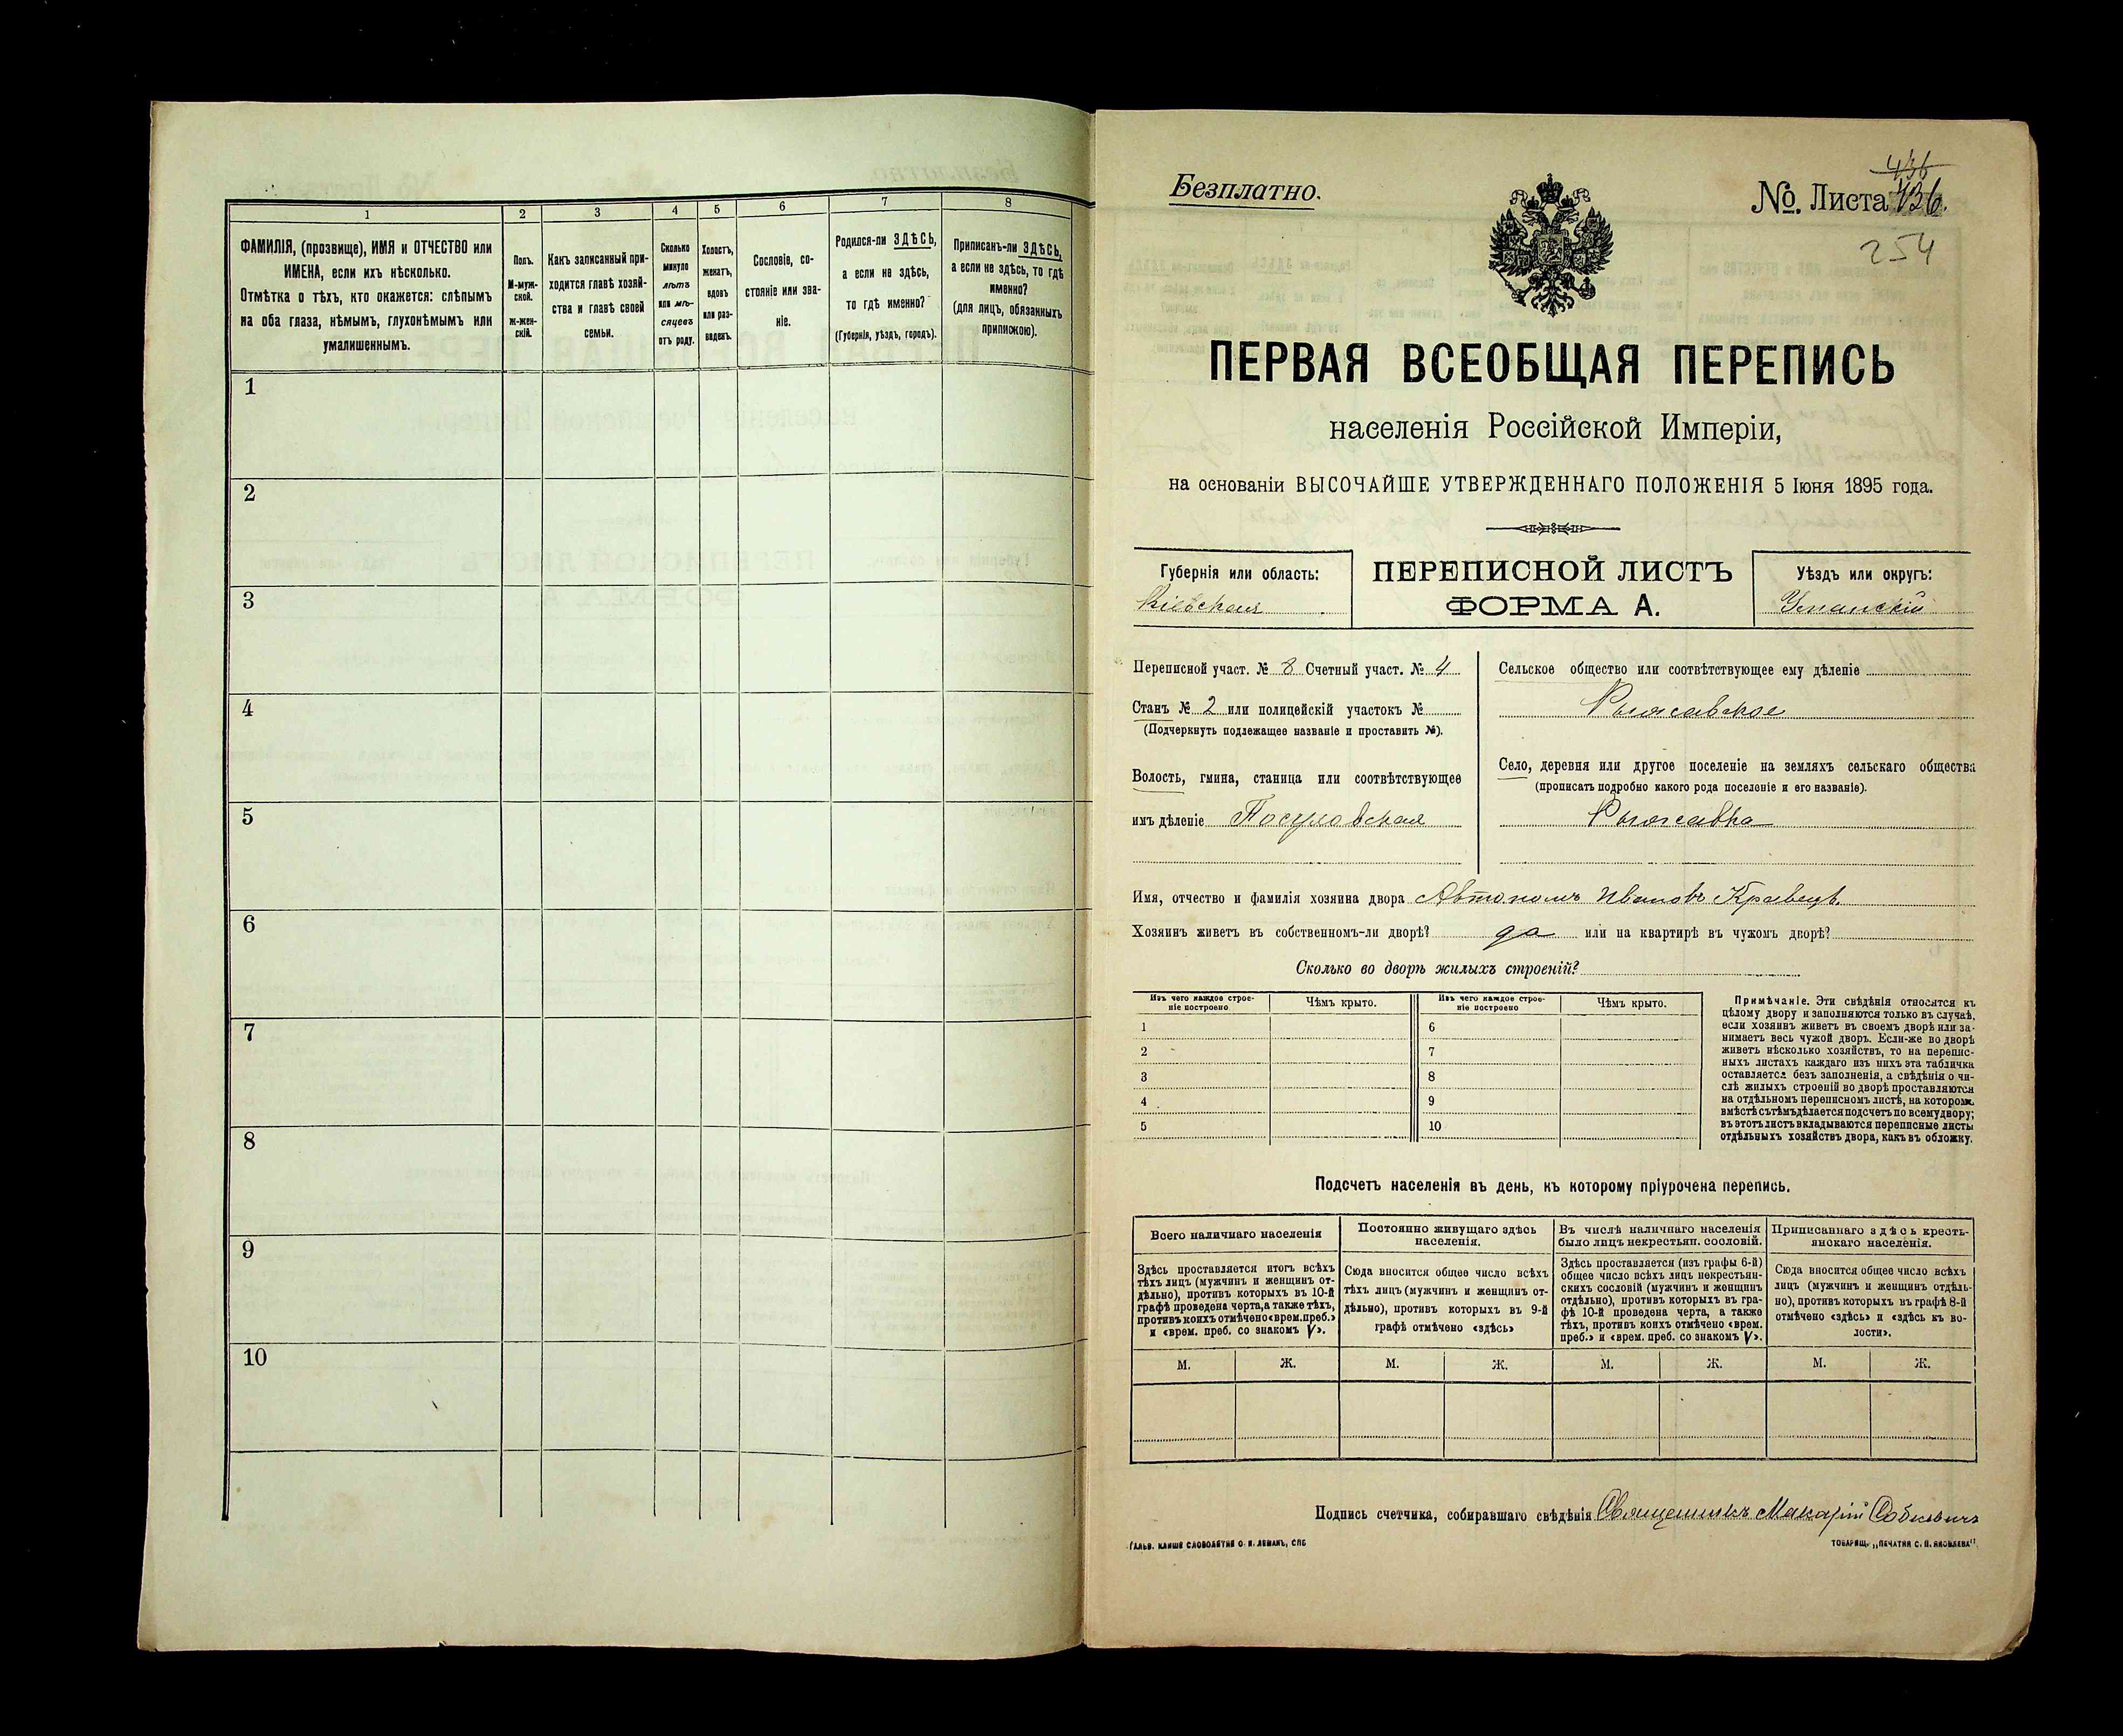 1 2 3 4 5 6 7 8
ФАМИЛІЯ, (прозвище), ИМЯ и ОТЧЕСТВО или
ИМЕНА, если ихъ нѣсколько.
Отмѣтка о тѣхъ, кто окажется: слѣпымъ
на оба глаза, нѣмымъ, глухонѣмымъ или
умалишеннымъ.
Полъ.
М-муж-
ской.
ж-жен-
скій.
Какъ записанный при-
ходится главѣ хозяй-
ства и главѣ своей
семьи.
Сколько
минуло
лѣтъ
или мѣ-
сяцевъ
отъ роду.
Холостъ,
женатъ,
вдовъ
или раз-
веденъ.
Сословіе, со-
стояніе или зва-
ніе.
Родился-ли ЗДѢСЬ,
а если не здѣсь,
то гдѣ именно?
(Губернія, уѣздъ, городъ).
Приписанъ-ли ЗДѢСЬ,
а если не здѣсь, то гдѣ
именно?
(для лицъ, обязанныхъ
припискою).
1
2
3
4
5
6
7
8
9
10
Безплатно.
436
№. Листа 436.
254
ПЕРВАЯ ВСЕОБЩАЯ ПЕРЕПИСЬ
населенія Россійской Имперіи,
на основаніи ВЫСОЧАЙШЕ УТВЕРЖДЕННАГО ПОЛОЖЕНІЯ 5 Іюня 1895 года.
Губернія или область:
Кіевская
ПЕРЕПИСНОЙ ЛИСТЪ
ФОРМА А.
Уѣздъ или округъ:
Уманскій
Переписной участ. № 8 Счетный участ. № 4
Станъ № 2 или полицейскій участокъ №
(Подчеркнуть подлежащее названіе и проставить №).
Волость, гмина, станица или соотвѣтствующее
имъ дѣленіе Посуховская
Сельское общество или соотвѣтствующее ему дѣленіе
Рыжавское
Село, деревня или другое поселеніе на земляхъ сельскаго общества
(прописать подробно какого рода поселеніе и его названіе).
Рыжавка
Имя, отчество и фамилія хозяина двора Автономъ Ивановъ Кравецъ.
Хозяинъ живетъ въ собственномъ-ли дворѣ? да или на квартирѣ въ чужомъ дворѣ?
Сколько во дворѣ жилыхъ строеній?
Изъ чего каждое строе-
ніе построено
Чѣмъ крыто.
Изъ чего каждое строе-
ніе построено
Чѣмъ крыто.
1 6
2 7
3 8
4 9
5 10
Примѣчаніе. Эти свѣдѣнія относятся къ
цѣлому двору и заполняются только въ случаѣ,
если хозяинъ живетъ въ своемъ дворѣ или за-
нимаетъ весь чужой дворъ. Если-же во дворѣ
живетъ нѣсколько хозяйствъ, то на перепис-
ныхъ листахъ каждаго изъ нихъ эта табличка
оставляется безъ заполненія, а свѣдѣнія о чи-
слѣ жилыхъ строеній во дворѣ проставляются
на отдѣльномъ переписномъ листѣ, на которомъ
вмѣстѣ съ тѣмъ дѣлается подсчетъ по всему двору;
въ этотъ листъ вкладываются переписные листы
отдѣльныхъ хозяйствъ двора, какъ въ обложку.
Подсчетъ населенія въ день, къ которому пріурочена перепись.
Всего наличнаго населенія
Здѣсь проставляется итогъ всѣхъ
тѣхъ лицъ (мужчинъ и женщинъ от-
дѣльно), противъ которыхъ въ 10-й
графѣ проведена черта, а также тѣхъ,
противъ коихъ отмѣчено «врем. преб.»
и «врем. преб. со знакомъ V».
Постоянно живущаго здѣсь
населенія.
Сюда вносится общее число всѣхъ
тѣхъ лицъ (мужчинъ и женщинъ от-
дѣльно), противъ которыхъ въ 9-й
графѣ отмѣчено «здѣсь»
Въ числѣ наличнаго населенія
было лицъ некрестьян. сословій.
Здѣсь проставляется (изъ графы 6-й)
общее число всѣхъ лицъ некрестьян-
скихъ сословій (мужчинъ и женщинъ
отдѣльно), противъ которыхъ въ гра-
фѣ 10-й проведена черта, а также
тѣхъ, противъ коихъ отмѣчено «врем.
преб.» и «врем. преб. со знакомъ V».
Приписаннаго здѣсь кресть-
янскаго населенія.
Сюда вносится общее число всѣхъ
лицъ (мужчинъ и женщинъ отдѣль-
но), противъ которыхъ въ графѣ 8-й
отмѣчено «здѣсь» и «здѣсь къ во-
лости».
М. Ж. М. Ж. М. Ж. М. Ж.
Подпись счетчика, собиравшаго свѣдѣнія Священникъ Макарій Собкевичъ
ГАЛЬВ. КЛИШЕ СЛОВОЛИТНИ О. И. ЛЕМАНЪ, СПБ
ТОВАРИЩ. „ПЕЧАТНЯ С. П. ЯКОВЛЕВА".